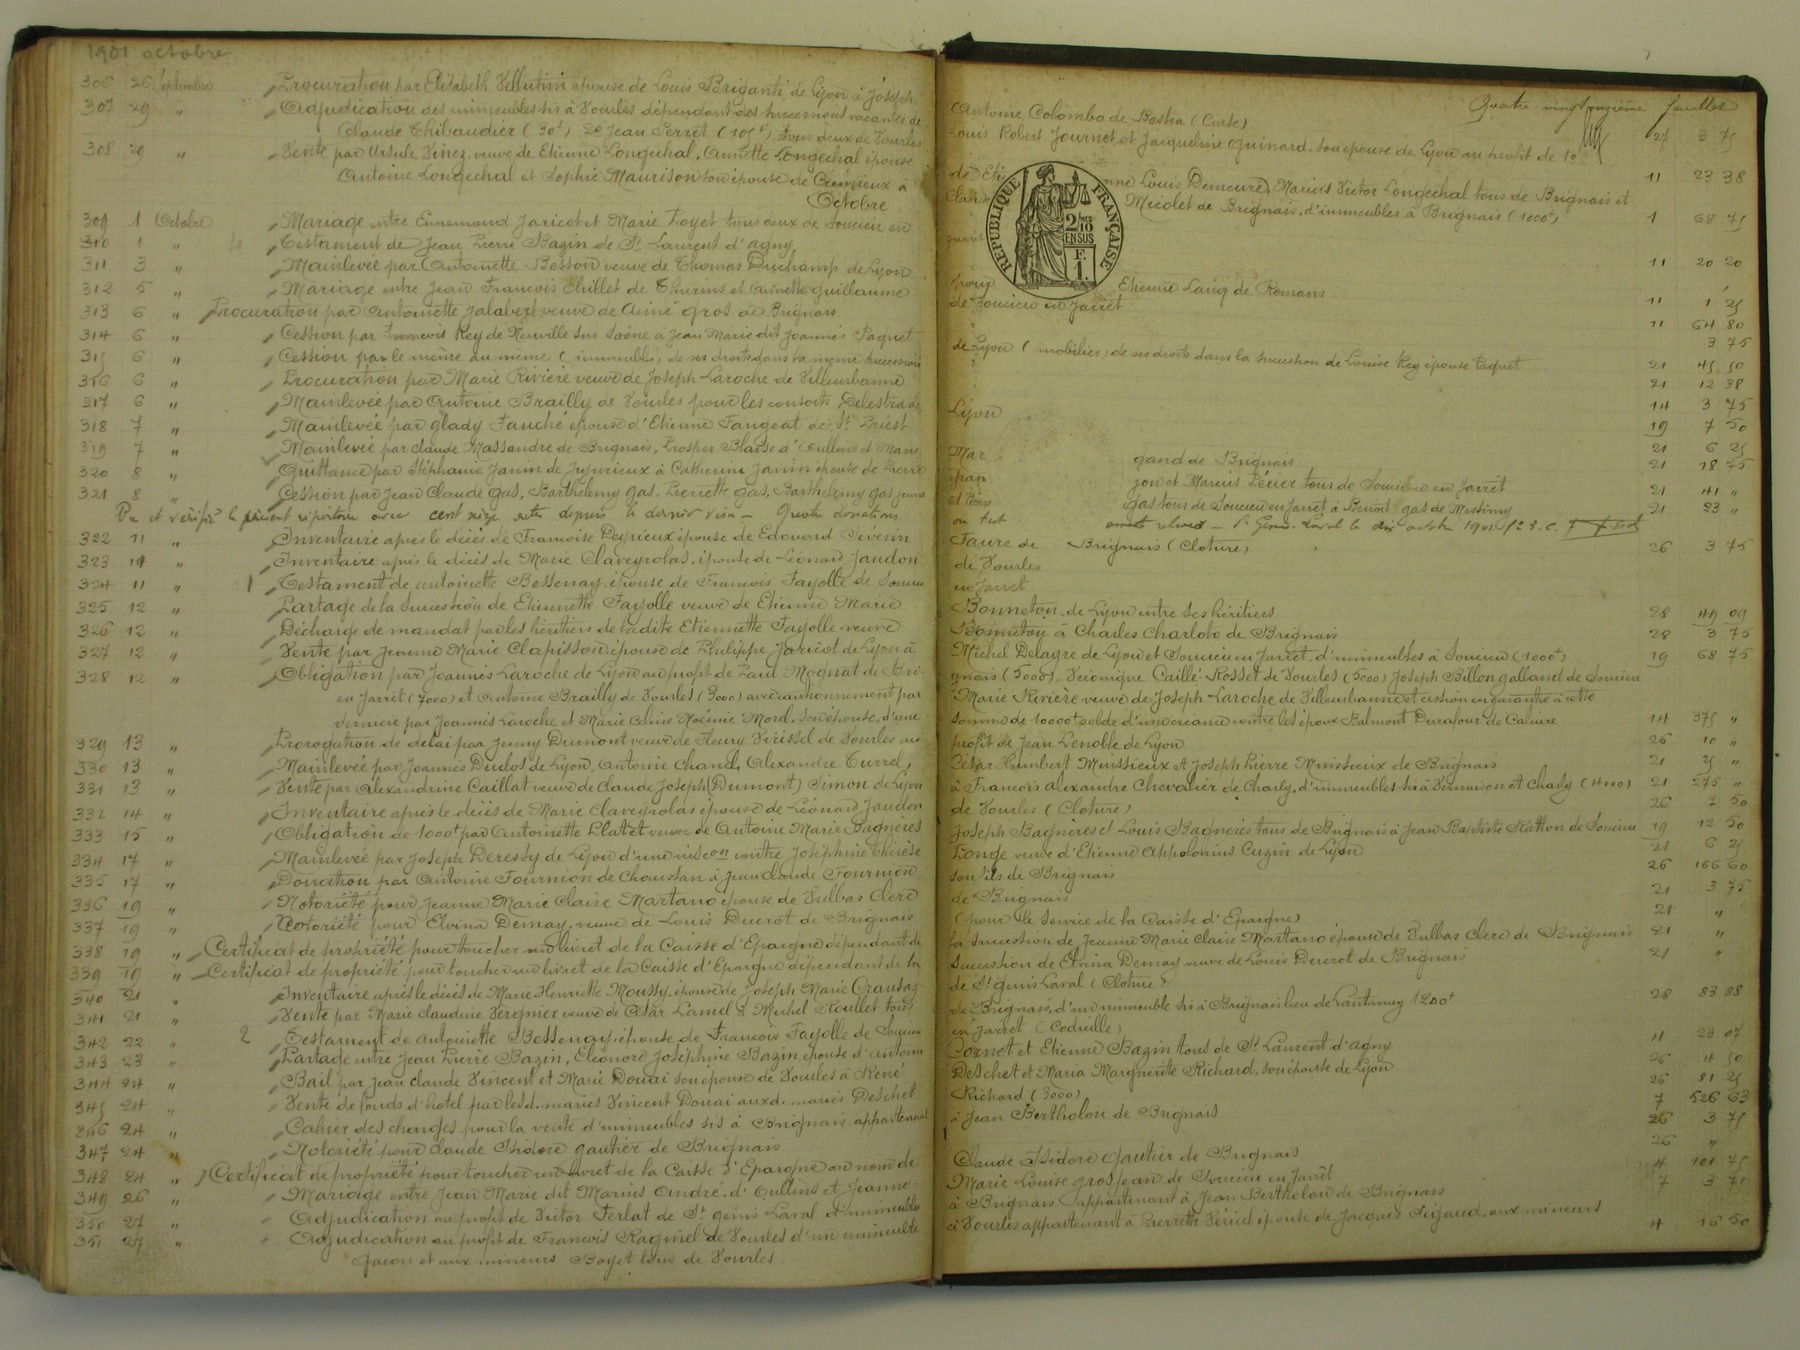 1901 octobre
306 26 Septembre Procuration par Elisabeth Vellutini épouse de Louis Briganti de Lyon à Joseph
307 29 " Adjudication des immeubles sis à Vourles dépendant des successions vacantes de
Claude Thibaudier (30f) 2e Jean Perret (105f) tous deux de Vourles
308 29 " Vente par Ursule Vinez veuve de Etienne Longechal, Annette Longechal épouse
Antoine Longechal et Sophie Maurison son épouse de Crémieux à
Octobre
309 1 Octobre Mariage entre Ennemond Jaricot et Marie Foyet tous deux de Soucieu en
310 1 " 4 Testament de Jean Pierre Bazin de St Laurent d'agny
311 3 " Mainlevée par Antoinette Besson veuve de Thomas Duchamp de Lyon
312 5 " Mariage entre Jean François Chillet de Thurins et Annette Guillaume
313 6 " Procuration par Antoinette Jalabert veuve de Aimé Gros de Brignais
314 6 " Cession par François Rey de Neuville sur Saône à Jean Marie dit Joannès Paquet
315 6 " Cession par le même au même (immeubles) de ses droits dans la même succession
316 6 " Procuration par Marie Rivière veuve de Joseph Laroche de Villeurbanne
317 6 " Mainlevée par Antoine Brailly de Vourles pour les consorts Delestrade
318 7 " Mainlevée par Glady Fauché épouse d'Etienne Fangeat de St Priest
319 7 " Mainlevée par Claude Massandre de Brignais, Prosper Blaise d'Oullins et Marie
320 8 " Quittance par Stéphanie Janin de Jujurieux à Catherine Janin épouse de Pierre
321 8 " Cession par Jean Claude Gas, Barthélemy Gas, Pierrette Gas, Barthélemy Gas jeune
Vu et vérifié le présent répertoire avec cent seize actes depuis le dernier visa - Quatre donations
322 11 " Inventaire après le décès de Françoise Peyrieux épouse de Edouard Séverin
323 14 " Inventaire après le décès de Marie Claveyrolas, épouse de Léonard Jaudon
324 11 " 1 Testament de antoinette Bessenay, épouse de François Fayolle de Soucieu
325 12 " Partage de la Succession de Etiennette Fayolle veuve de Etienne Marie
326 12 " Décharge de mandat par les héritiers de ladite Etiennette Fayolle veuve
327 12 " Vente par Jeanne Marie Clapisson épouse de Philippe Jaricot de Lyon à
328 12 " Obligation par Joannès Laroche de Lyon au profit de Paul Mognat de Bri-
en Jarret (7000) et Antoine Brailly de Vourles (3000) avec cautionnement par
dernière par Joannès Laroche et Marie Celine Noémie Morel, son épouse, d'une
329 13 " Prorogation de délai par Jenny Dumont veuve de Fleury Vérissel de Vourles au
330 13 " Mainlevée par Joannès Duclos de Lyon, Antoine Chand, Alexandre Turrel,
331 13 " Vente par Alexandrine Caillat veuve de Claude Joseph (Dumont) Simon de Lyon
332 14 " Inventaire après le décès de Marie Claveyrolas épouse de Léonard Jaudon
333 15 " Obligation de 1000f par Antoinette Platet veuve de Antoine Marie Bagnères
334 17 " Mainlevée par Joseph Deressy de Lyon d'une inscon contre Joséphine Thérèse
335 17 " Donation par Antoine Fournion de Chaussan à Jean Claude Fournion
336 19 " Notoriété pour Jeanne Marie Claire Martano épouse de Vulbas Clerc
337 19 " Notoriété pour Elvina Demay, veuve de Louis Ducrot de Brignais
338 19 " Certificat de propriété pour toucher un livret de la Caisse d'Epargne dépendant de
339 19 " Certificat de propriété pour toucher un livret de la Caisse d'Epargne dépendant de la
340 21 " Inventaire après le décès de Marie Henriette Moussy, épouse de Joseph Marie Crausaz
341 21 " Vente par Marie Claudine Vergnier veuve de César Laniel à Michel Roullet tous
342 22 " 2 Testament de antoinette Bessenay, épouse de François Fayolle de Soucieu
343 23 " Partage entre Jean Pierre Bazin, Eléonore Joséphine Bazin, épouse d'antoine
344 24 " Bail par Jean Claude Vincent et Marie Douai son épouse de Vourles à René
345 24 " Vente de fonds d'hotel par les d. mariés Vincent Douai aux d. mariés Deschet
346 24 " Cahier des charges pour la vente d'immeubles sis à Brignais appartenant
347 24 " Notoriété pour Claude Isidore Gautier de Brignais
348 24 " Certificat de propriété pour toucher un livret de la Caisse d'Epargne au nom de
349 26 " Mariage entre Jean Marie dit Marius André, d'Oullins et Jeanne
350 27 " Adjudication au profit de Victor Ferlat de St genis Laval d'immeubles
351 27 " Adjudication au profit de François Raginel de Vourles d'un immeuble
Jacon et aux mineurs Boyet tous de Vourles
Quatre-vingt onzième feuillet
Antoine Colombo de Bastia (Corse) 27 3 75
Louis Robert Journet et Jacqueline Guinard, son épouse de Lyon au profit de 1o
11 23 38
de Eti nne Louis Demeure, Marius Victor Longechal tous de Brignais et
Claud Micolet de Brignais, d'immeubles à Brignais (1000f) 1 68 75
Jarret 11 20 20
RÉPUBLIQUE FRANÇAISE
2/10 EN SUS
F. 1.
pour Etienne Lang de Romans
de Soucieu en Jarret 11 1 25
11 64 80
3 75
de Lyon (mobilier) de ses droits dans la succession de Louise Rey épouse Paquet 21 45 50
21 12 38
14 3 75
Lyon 19 7 50
21 6 25
Mar gand de Brignais 21 18 75
Fran jon et Marius Périer tous de Soucieu en Jarret 21 41 "
et Pierre Gas tous de Soucieu en Jarret à Benoit Gas de Messimy 21 23 "
ou test relevés - St Genis-Laval le dix octobre 1901
Faure de Brignais (Cloture) 26 3 75
de Vourles
en Jarret
Bonneton, de Lyon entre ses héritiers 28 49 09
Bonneton à Charles Charlot de Brignais 28 3 75
Michel Delayre de Lyon et Soucieu en Jarret, d'immeubles à Soucieu (1000f) 19 68 75
gnais (5000), Véronique Caille-Rosset de Vourles (5000) Joseph Billon galland de Soucieu
Marie Rivière veuve de Joseph Laroche de Villeurbanne et cession en garantie à cette
somme de 10000f solde d'une créance contre les époux Balmont Durafour de Caluire 14 375 "
profit de Jean Lenoble de Lyon 26 10 "
César Humbert Mussieux et Joseph Pierre Mussieux de Brignais 21 25 "
à François Alexandre Chevalier de Charly, d'immeubles sis à Vernaison et Charly (4000) 21 275 "
de Vourles (Cloture) 26 7 50
Joseph Bagnères et Louis Bagnères tous de Brignais à Jean Baptiste Ratton de Soucieu 19 12 50
Ponge veuve d'Etienne Appolonius Cuzin de Lyon 21 6 25
son fils de Brignais 26 166 60
de Brignais 21 3 75
(pour le service de la Caisse d'Epargne) 21 "
la succession de Jeanne Marie Claire Martano épouse de Vulbas Clerc de Brignais 21 "
succession de Elvina Demay veuve de Louis Ducrot de Brignais 21 "
de St genis Laval (Cloture)
de Brignais, d'un immeuble sis à Brignais lieu de Lantenay 1200f 28 83 88
en Jarret (Codicille)
Cornet et Etienne Bazin tous de St Laurent d'agny 11 23 07
Deschet et Maria Marguerite Richard, son épouse de Lyon 26 4 50
Richard (3000) 26 81 25
à Jean Bertholon de Brignais 7 526 63
26 3 75
26 "
Claude Isidore Gautier de Brignais
Marie Louise Grosjean de Soucieu en Jarret 4 101 75
à Brignais appartenant à Jean Bertholon de Brignais 7 3 75
à Vourles appartenant à Pierrette Véricel épouse de Jacques Pigaud, aux mineurs 4 16 50